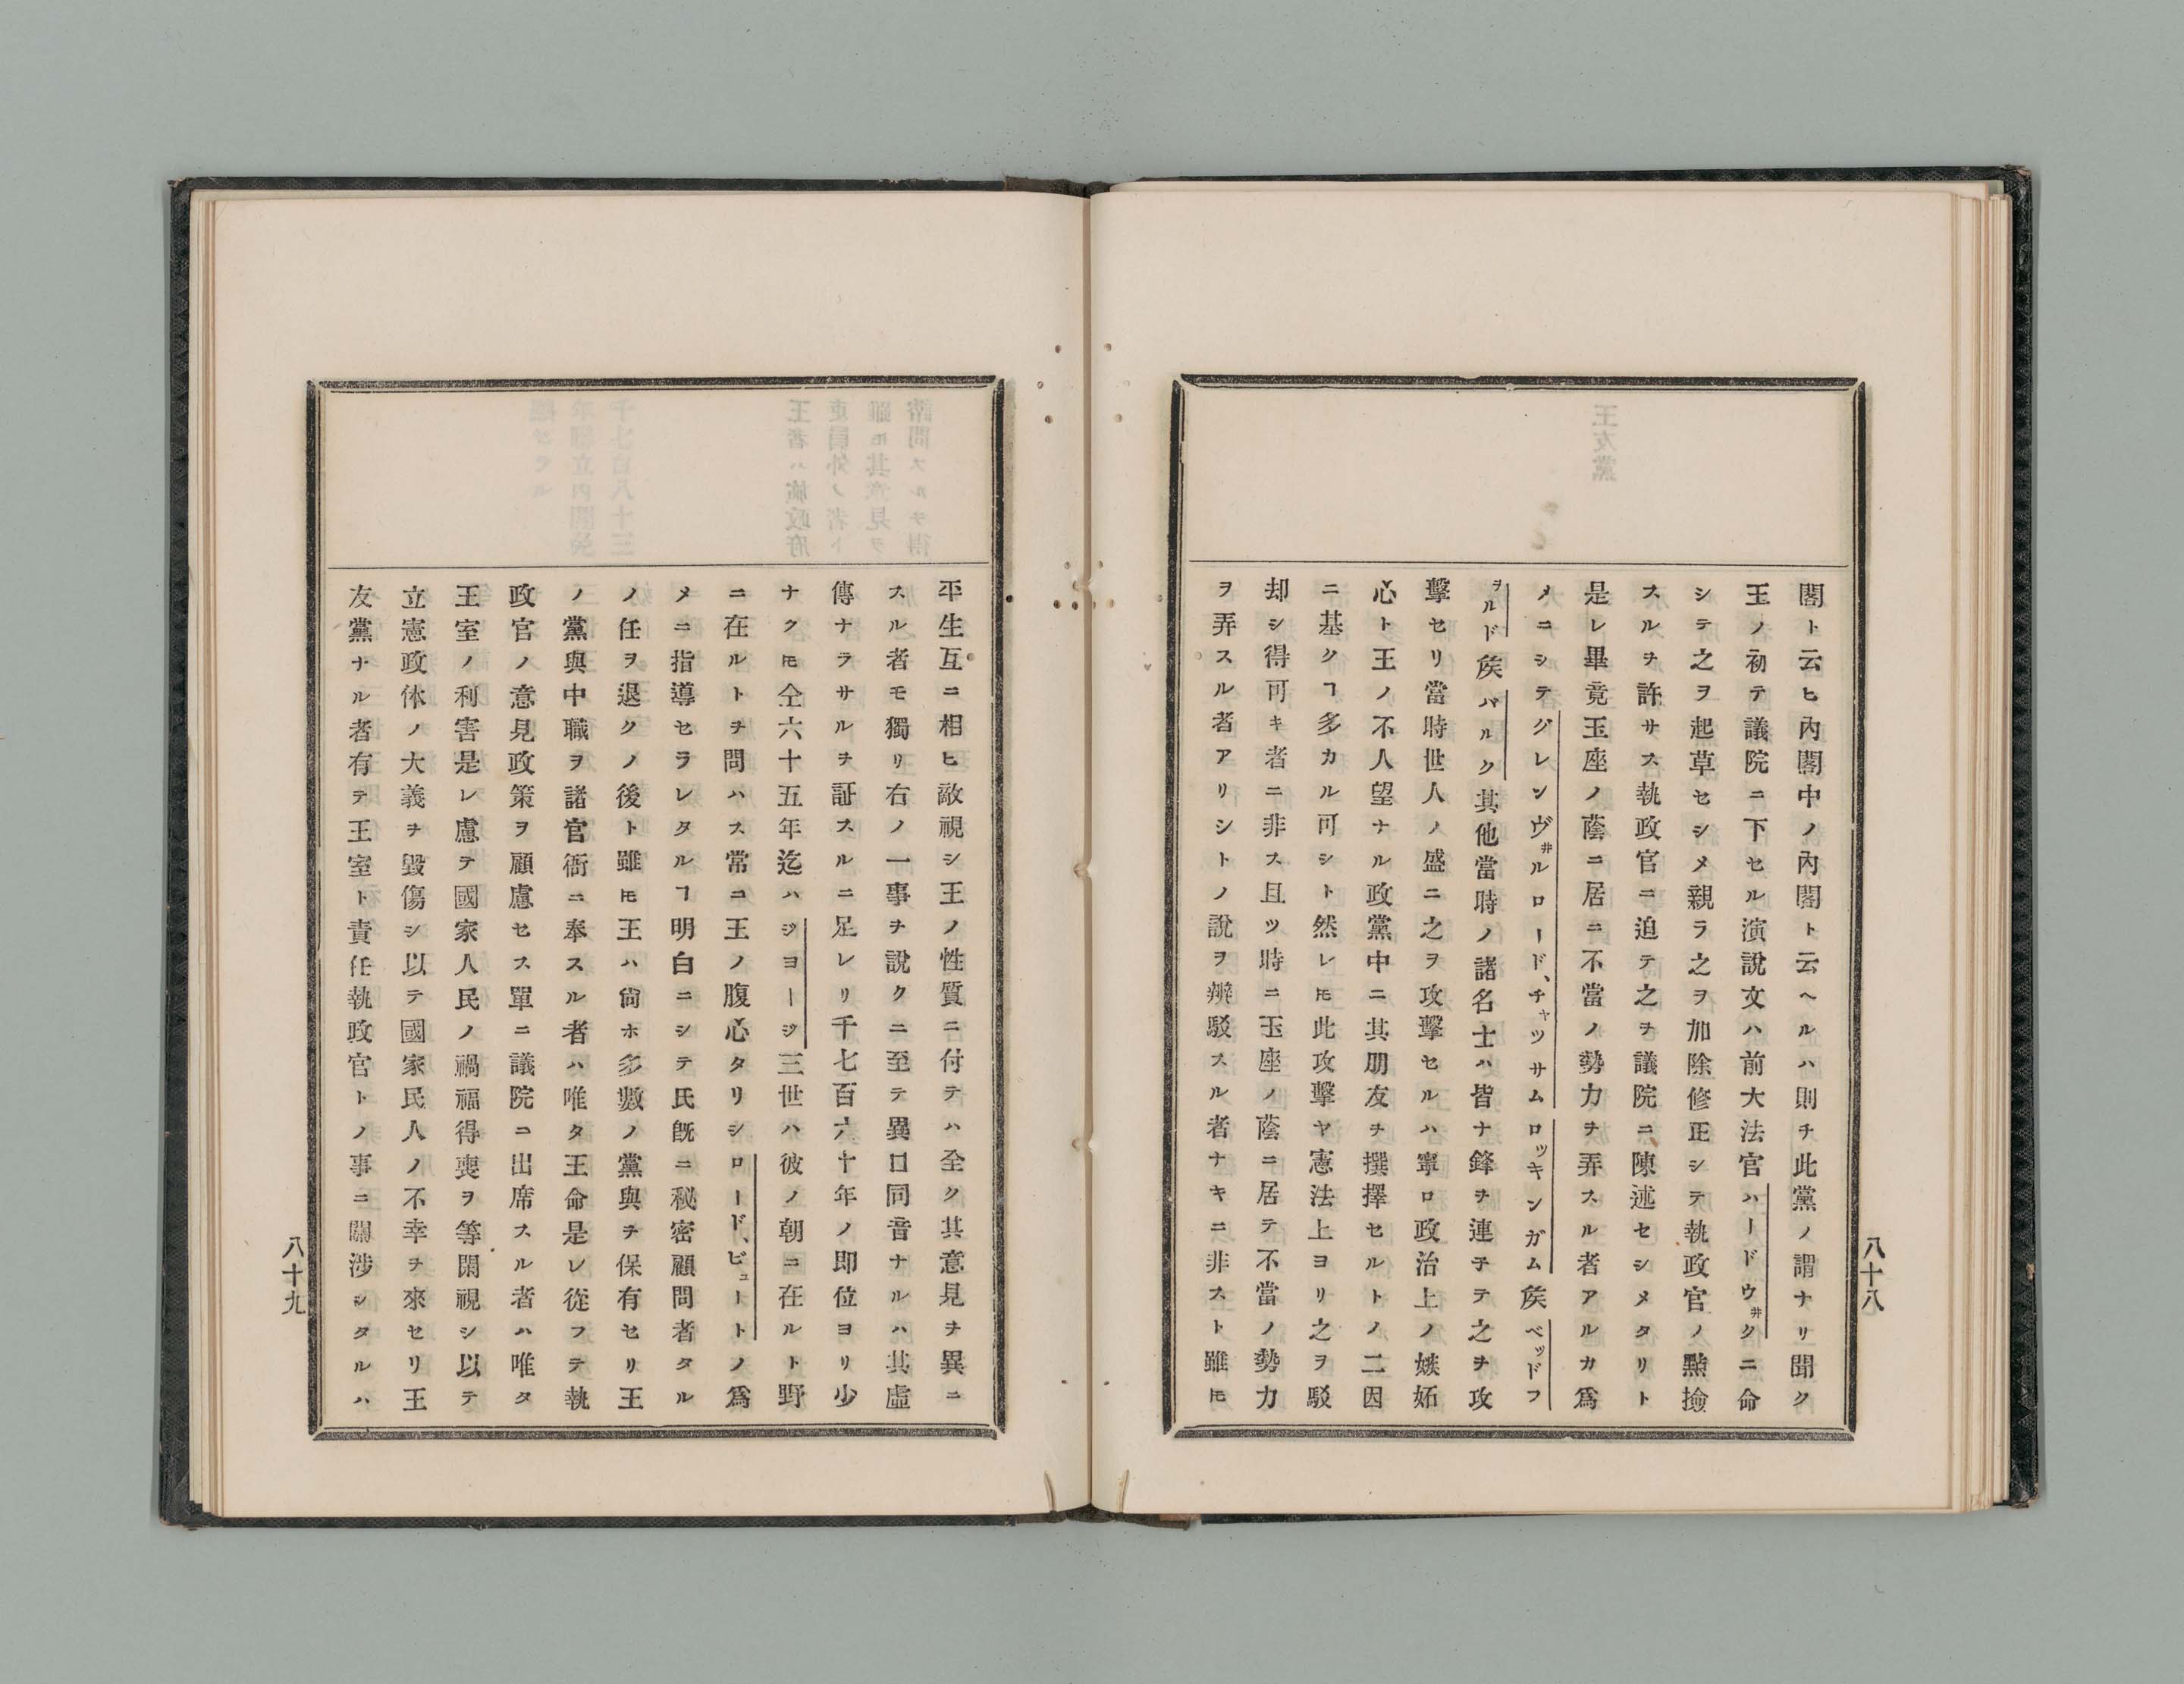 閣ト云ヒ內閣中ノ內閣ト云ヘルハ則チ此黨ノ謂ナリ聞ク
王ノ初テ議院ニ下セル演說文ハ前大法官ハードウ井クニ命
シテ之ヲ起草セシメ親ラ之ヲ加除修正シテ執政官ノ點撿
スルヲ許サス執政官ニ迫テ之ヲ議院ニ陳述セシメタリト
是レ畢竟玉座ノ蔭ニ居ニ不當ノ勢力ヲ弄スル者アルカ爲
メニシテグレンヴ井ルロード、チャツサムロッキンガム矦ベッドフ
ヲルド矦バルク其他當時ノ諸名士ハ皆ナ鋒ヲ連子テ之ヲ攻
擊セリ當時世人ノ盛ニ之ヲ攻擊セルハ寧ロ政治上ノ嫉妬
心ト王ノ不人望ナル政黨中ニ其朋友ヲ撰擇セルトノ二因
ニ基クヿ多カル可シト然レ𪜈此攻擊ヤ憲法上ヨリ之ヲ駁
却シ得可キ者ニ非ス且ツ時ニ玉座ノ蔭ニ居テ不當ノ勢力
ヲ弄スル者アリシトノ說ヲ辨駁スル者ナキニ非スト雖𪜈
八十八
平生互ニ相ヒ敵視シ王ノ性質ニ付テハ全ク其意見ヲ異ニ
スル者モ獨リ右ノ一事ヲ說クニ至テ異口同音ナルハ其虛
傳ナラサルヲ証スルニ足レリ千七百六十年ノ即位ヨリ少
ナク𪜈仝六十五年迄ハジヨージ三世ハ彼ノ朝ニ在ルト野
ニ在ルトヲ問ハス常ニ王ノ腹心タリシロード、ビュートノ爲
メニ指導セラレタルヿ明白ニシテ氏旣ニ秘密顧問者タル
ノ任ヲ退クノ後ト雖𪜈王ハ尙ホ多數ノ黨與ヲ保有セリ王
ノ黨與中職ヲ諸官衙ニ奉スル者ハ唯タ王命是レ從フテ執
政官ノ意見政策ヲ顧慮セス單ニ議院ニ出席スル者ハ唯タ
王室ノ利害是レ慮テ國家人民ノ禍福得喪ヲ等閑視シ以テ
立憲政体ノ大義ヲ毀傷シ以テ國家民人ノ不幸ヲ來セリ王
友黨ナル者有テ王室ト責任執政官トノ事ニ關涉シタルハ
八十九